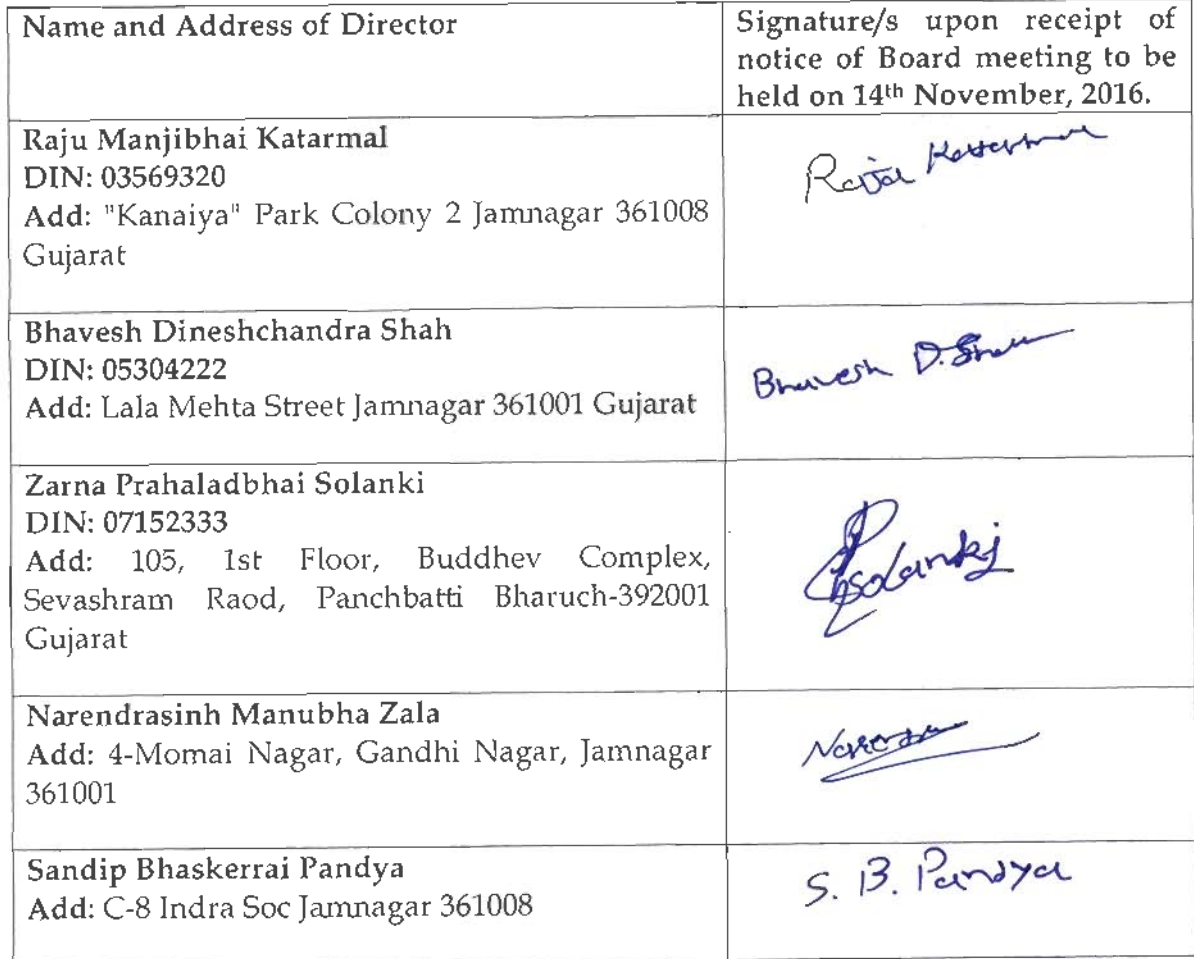 Name and Address of Director
Signature/s upon receipt of
notice of Board meeting to be
held on 14th November, 2016.
Raju Manjibhai Katarmal
DIN: 03569320
Add: "Kanaiya" Park Colony 2 Jamnagar 361008
Gujarat
Raju Katarmal
Bhavesh Dineshchandra Shah
DIN: 05304222
Add: Lala Mehta Street Jamnagar 361001 Gujarat
Bhavesh D. Shah
Zarna Prahaladbhai Solanki
DIN: 07152333
Add: 105, 1st Floor, Buddhev Complex,
Sevashram Raod, Panchbatti Bharuch-392001
Gujarat
solanki
Narendrasinh Manubha Zala
Add: 4-Momai Nagar, Gandhi Nagar, Jamnagar
361001
Sandip Bhaskerrai Pandya
Add: C-8 Indra Soc Jamnagar 361008
S. B. Pandya